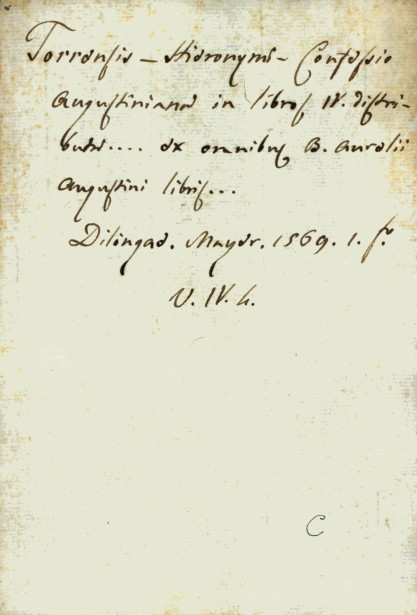 Torrensis - Hieronymi - Confessio
Augustiniana in libros IV. distri-
buta.... ex omnibus B. Aurelii
Augustini libris...
Dilingae. Mayer. 1569. 1. f.
V. IV. 4.
C